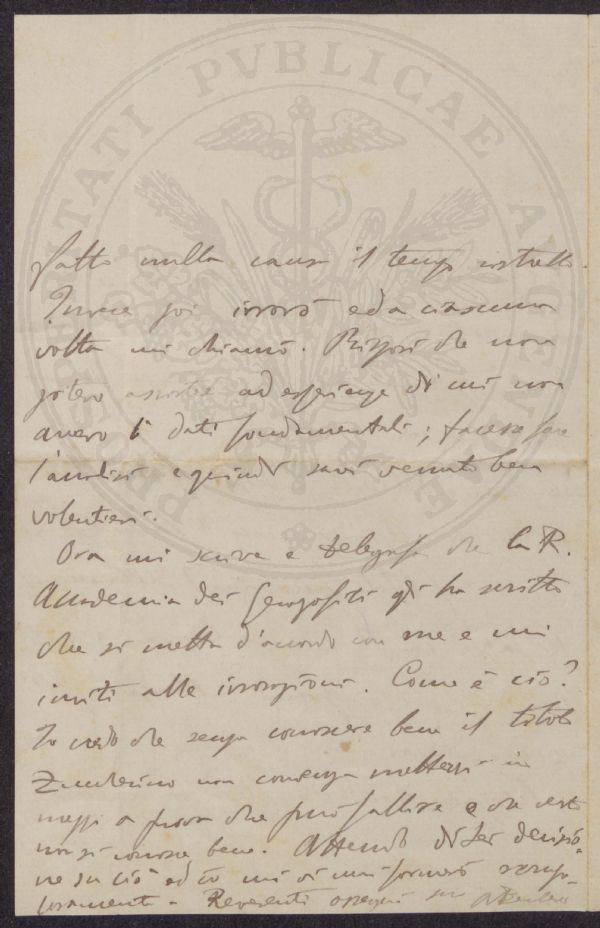 PROSPERITATI PVBLICAE AVGENDAE
fatto nulla causa il tempo ristretto.
Invece poi irrorò ed a ciascuna
volta mi chiamò. Risposi che non
potevo assistere ad esperienze di cui non
avevo i dati fondamentali; facesse fare
l'analisi e quindi sarei venuto ben
volentieri.
Ora mi scrive e telegrafa che la R.
Accademia dei Georgofili gli ha scritto
che si metta d'accordo con me e mi
inviti alle irrorazioni. Come è ciò?
Io credo che senza conoscere bene il titolo
Zuccherino non convenga mettersi in
mezzi a prova che può fallire e che certo
non si conosce bene. Attendo di Lei decisio-
ne su ciò ed io mi vi uniformerò scrupo-
losamente. Reverenti ossequi suo